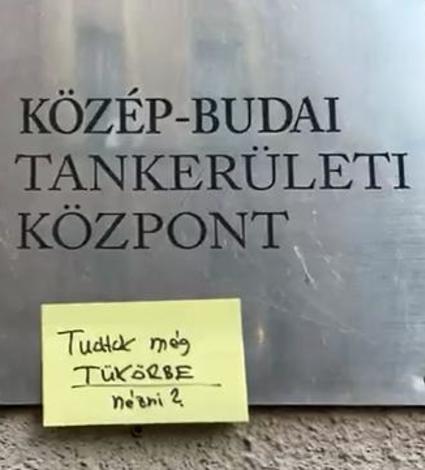 KÖZÉP-BUDAI
TANKERÜLETI
KÖZPONT
Tudtok még
TÜKÖRBE
nézni?